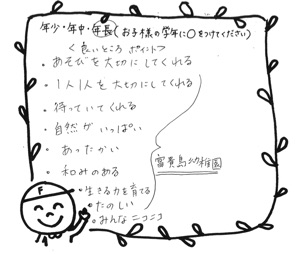 年少・年中・年長(お子様の学年に○をつけてください)
<良いところ ポイント>
・あそびを大切にしてくれる
・1人1人を大切にしてくれる
・待っていてくれる
・自然がいっぱい
・あったかい
・和みのある
・生きる力を育てる
・たのしい
・みんなニコニコ
富貴島幼稚園
F